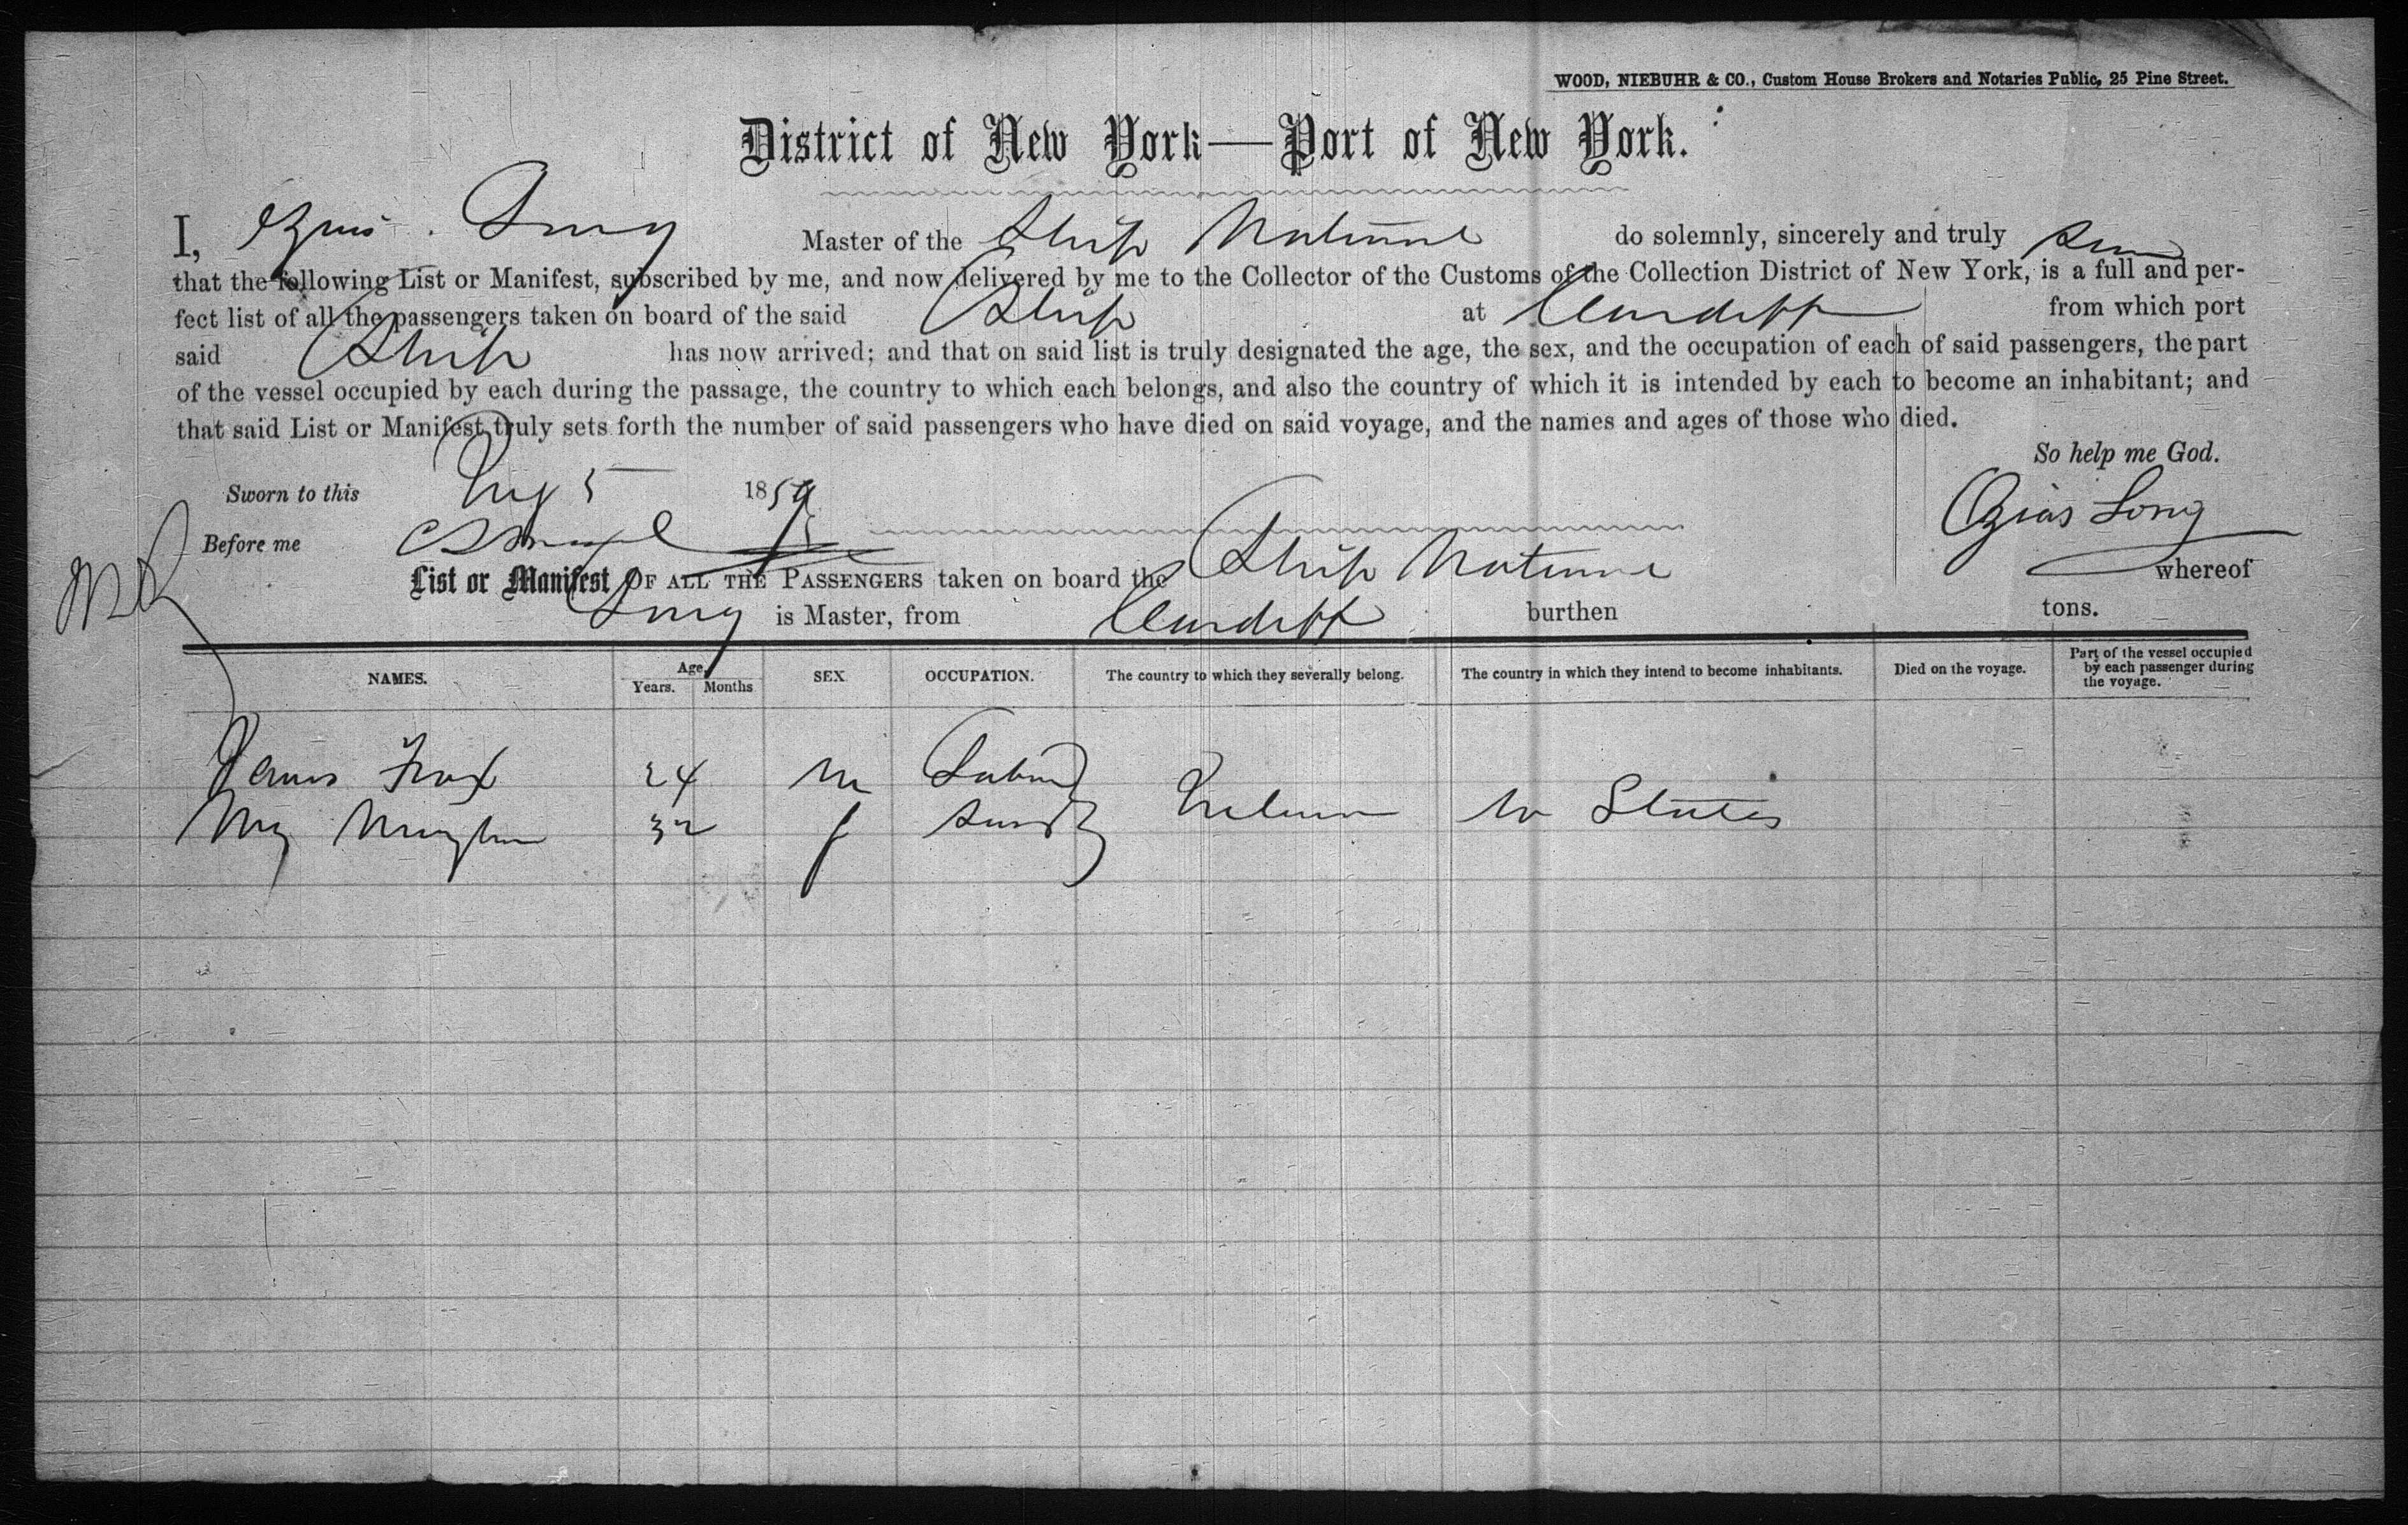 WOOD, NIEBUHR & CO., Custom House Brokers and Notaries Public, 25 Pine Street.
District of New York—Port of New York.
I, Ozias Long Master of the Ship National do solemnly, sincerely and truly
that the following List or Manifest, subscribed by me, and now delivered by me to the Collector of the Customs of the Collection District of New York, is a full and per-
fect list of all the passengers taken on board of the said Ship at Cardiff from which port
said Ship has now arrived; and that on said list is truly designated the age, the sex, and the occupation of each of said passengers, the part
of the vessel occupied by each during the passage, the country to which each belongs, and also the country of which it is intended by each to become an inhabitant; and
that said List or Manifest truly sets forth the number of said passengers who have died on said voyage, and the names and ages of those who died.
So help me God.
Sworn to this 5 1859
Ozias Long
Before me
List or Manifest OF ALL THE PASSENGERS taken on board the Ship National whereof
Long is Master, from Cardiff burthen tons.
NAMES. Age. Years. Months SEX OCCUPATION. The country to which they severally belong. The country in which they intend to become inhabitants. Died on the voyage. Part of the vessel occupied by each passenger during the voyage.
James Fox 24 m Labor
32 f Ireland U States